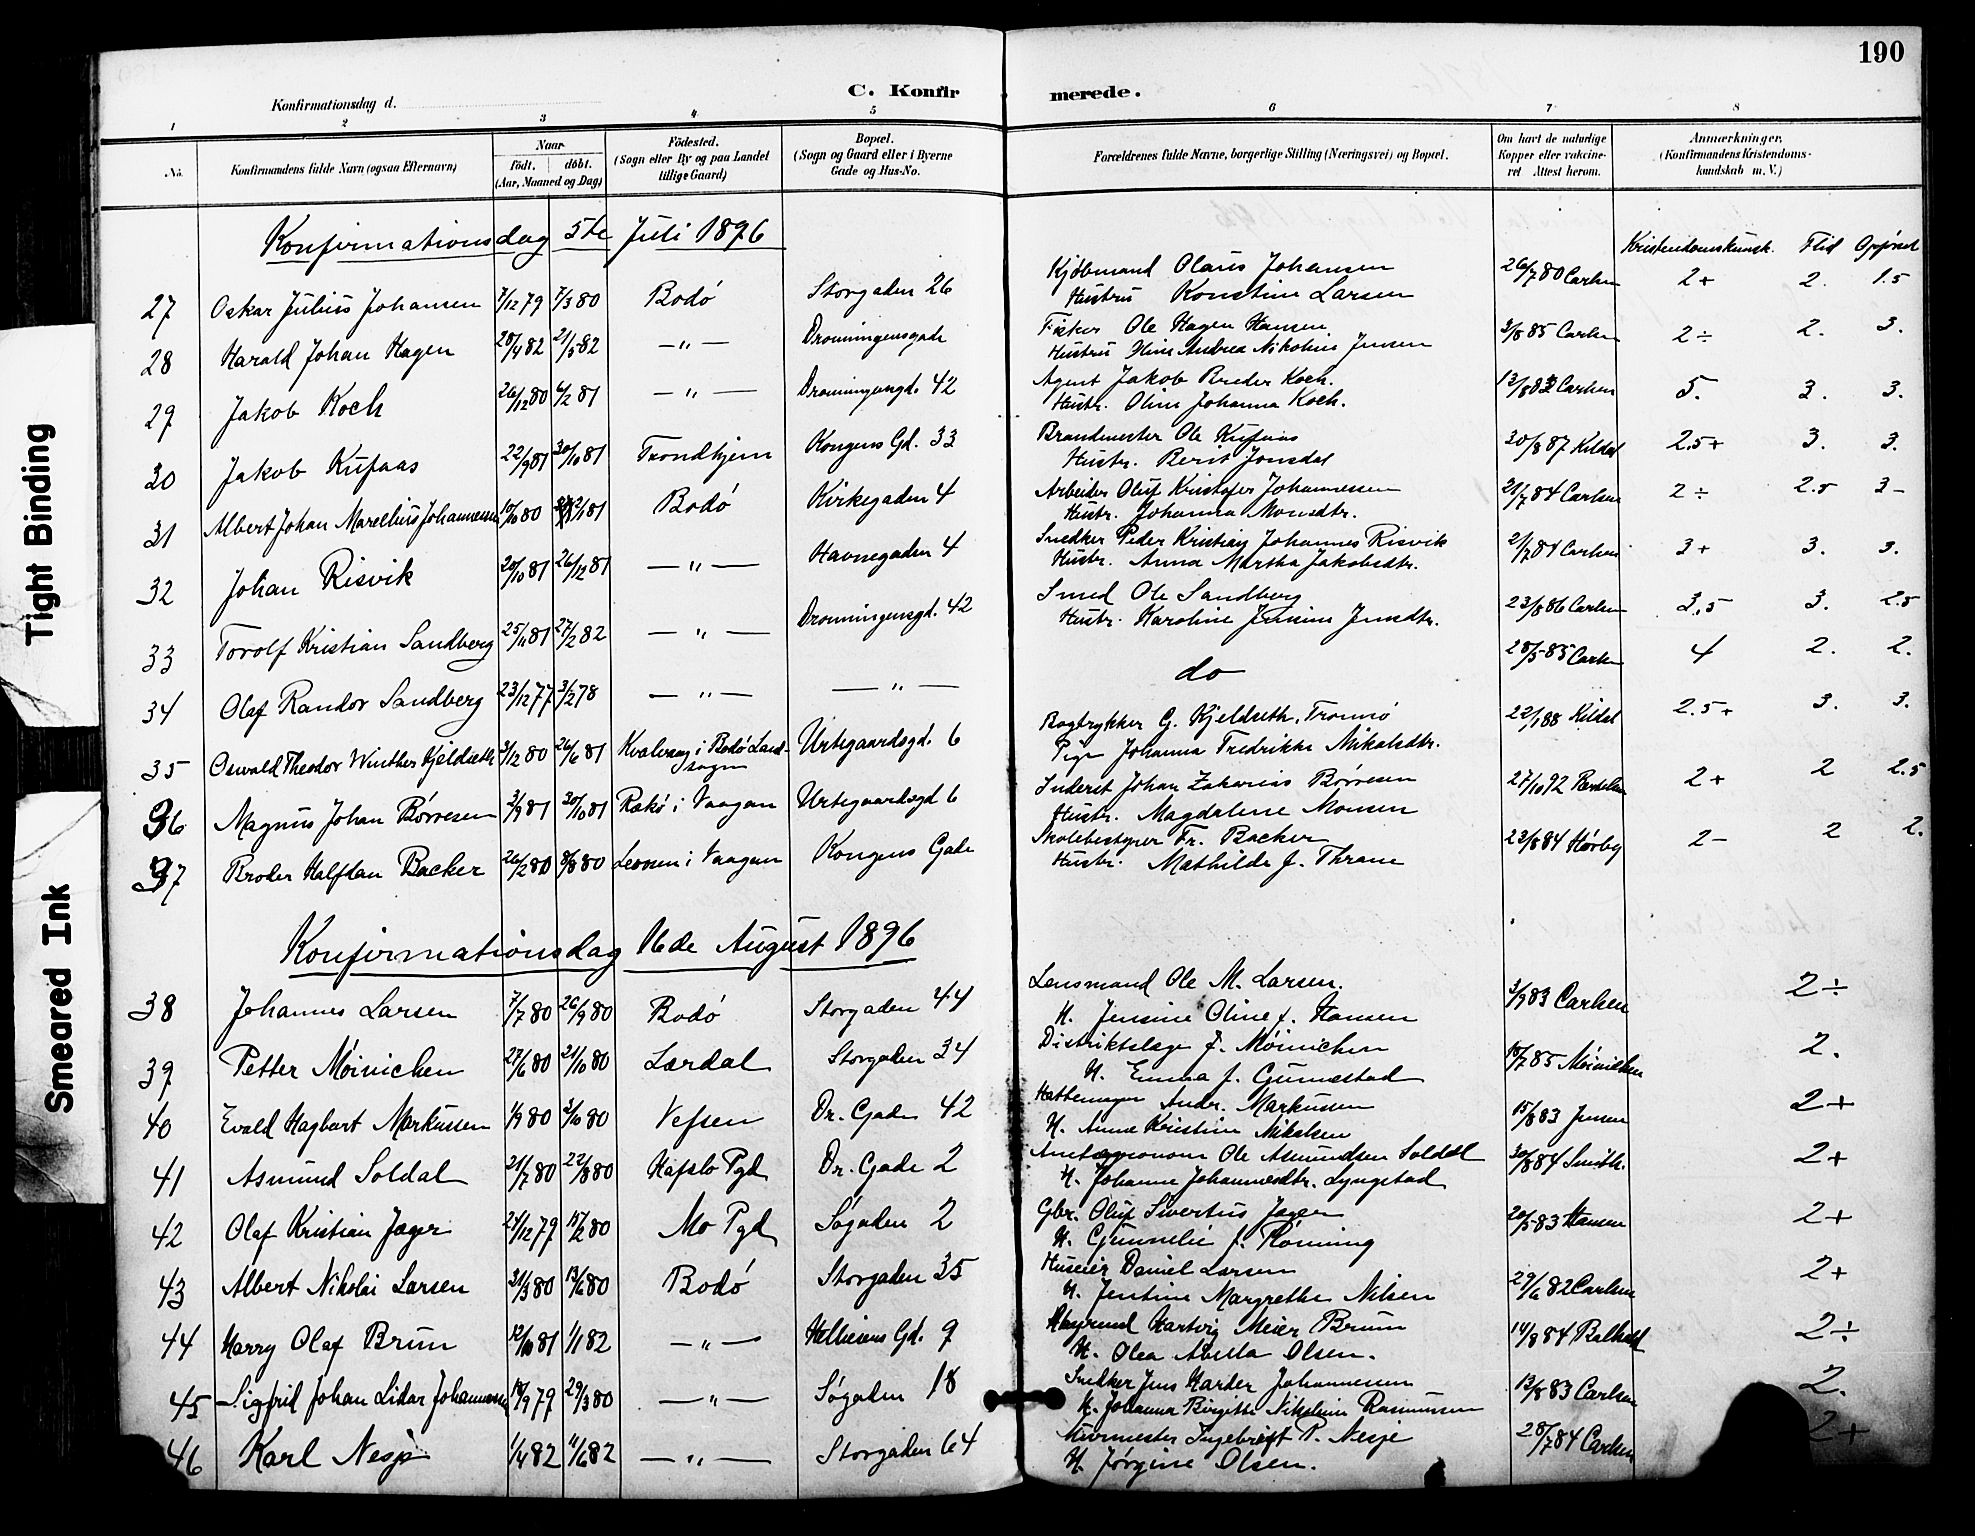 190
C. Konfir merede.
Konfirmationsdag d.
1 2 3 4 5 6 7 8
No.
Konfirmandens fulde Navn (ogsaa Efternavn)
Naar
födt. döbt.
(Aar, Maaned og Dag)
Födested.
(Sogn eller By og paa Landet
tillige Gaard)
Bopæl.
(Sogn og Gaard eller i Byerne
Gade og Hus-No.
Forældrenes fulde Navne, borgerlige Stilling (Næringsvei) og Bopæl.
Om havt de naturlige
Kopper eller vakcine-
ret Attest herom.
Anmærkninger.
(Konfirmandens Kristendoms-
kundskab m. V.)
Konfirmationsdag 5te Juli 1896
Kristendomskunsk. Flid Opførsel
27 Oskar Julius Johansen 7/12 79 7/3 80 Bodó Storgaden 26 Kjøbmand Olaus Johansen 26/7 80 Carlsen 2+ 2. 1.5
Hustru Konstine Larsen
28 Harald Johan Hagen 28/4 82 21/5 82 — " — Dronningensgade Fisker Ole Hagen Hansen 3/8 85 Carlsen 2÷ 2. 3.
Hustru Andrea Nikoline Jensen
29 Jakob Koch 26/12 80 6/2 81 — " — Dronningensgd. 42 Agent Jakob Breder Koch. 13/8 83 Carlsen 5. 3. 3.
Hustr. Oline Johanna Koch.
30 Jakob Kufaas 22/9 81 30/10 81 Trondhjem Kongens Gd. 33 Brandmester Ole Kufaas 30/8 87 Kildal 2.5+ 3. 3.
Hustr. Berit Jonsdal
31 Albert Johan Marelius Johannessen 10/10 80 Bodó Kirkegaden 4 Arbeider Oluf Kristofer Johannessen 21/7 84 Carlsen 2÷ 2.5 3-
Hustr. Johanna Monsdtr.
32 Johan Risvik 20/10 81 26/12 81 — " — Havnegaden 4 Snedker Peder Kristian Johannes Risvik 2/7 84 Carlsen 3+ 3. 3.
Hustr. Anna Martha Jakobsdtr.
33 Torolf Kristian Sandberg 25/11 81 27/2 82 — " — Dronningensgd. 42 Smed Ole Sandberg 23/8 86 Carlsen 3.5 3. 2.5
Hustr. Karoline Jensine Jensdtr.
34 Olaf Randor Sandberg 23/12 77 3/2 78 — " — — " — do 28/5 85 Carlsen 4 2. 2.
35 Oswald Theodor Winther Kjeldseth 3/12 80 26/6 81 Kvalvaag i Bodó Land- Urtegaardsgd. 6 Bogtrykker G. Kjeldseth, Tromsø 22/1 88 Kildal 2.5+ 3. 3.
sogn Pige Johanna Fredrikke Nikolsdtr.
36 Magnus Johan Børresen 3/9 81 30/10 81 Rækø i Vaagan Urtegaardsgd 6 Inderst Johan Zakarias Børresen 27/10 92 2+ 2 2.5
Hustr. Magdalene Monsen
37 Broder Halfdan Backer 26/2 80 8/8 80 i Vaagan Kongens Gade Skolebestyrer Fr. Backer 23/8 84 Hørby 2- 2 2.
Hustr. Mathilde f. Thrane
Konfirmationsdag 16de August 1896
38 Johannes Larsen 7/7 80 26/9 80 Bodó Storgaden 44 Lensmand Ole M. Larsen. 3/9 83 Carlsen 2÷
H. Jensine Oline f. Hansen
39 Petter Móinichen 27/6 80 21/10 80 Lærdal Storgaden 34 Distriktslæge F. Móinichen 18/7 85 Móinichen 2.
H. Emma f. Gunnestad
40 Evald Hagbart Markussen 1/9 80 3/10 80 Vefsen Dr. Gaden 42 Hattemager Andr. Markussen 15/8 83 Jensen 2+
H. Anne Kristine Nikolsen
41 Asmund Soldal 21/7 80 22/8 80 Hafslo Pgd Dr. Gade 2 Amtagronom Ole Asmundsen Soldal 30/8 84 Smith. 2+
H. Johanne Johannesdtr. Lyngstad
42 Olaf Kristian Jæger 21/12 79 15/2 80 Mo Pgd Søgaden 2 Gbr. Oluf Sivertus Jæger 20/5 83 Hansen 2+
H. Gunnelie f. Rønning
43 Albert Nikolai Larsen 21/3 80 13/6 80 Bodó Storgaden 35 Huseier Daniel Larsen 29/6 82 Carlsen 2+
H. Jentine Margrethe Nilsen
44 Harry Olaf Brun 12/10 81 1/1 82 — " — Gd. 9 Hartvig Meier Brun 14/8 84 2÷
H. Olea Abella Olsen.
45 Sigfrid Johan Lidar Johannessen 18/9 79 29/3 80 — " — Søgaden 18 Snedker Jens Harder Johannesen 13/8 83 Carlsen 2.
H. Johanna Birgitte Nikoline Rasmussen
46 Karl Nesje 1/4 82 11/6 82 — " — Storgaden 64 Murmester Ingebrigt P. Nesje 28/7 84 Carlsen 2+
H. Jørgine Olsen.
Tight Binding
Smeared Ink